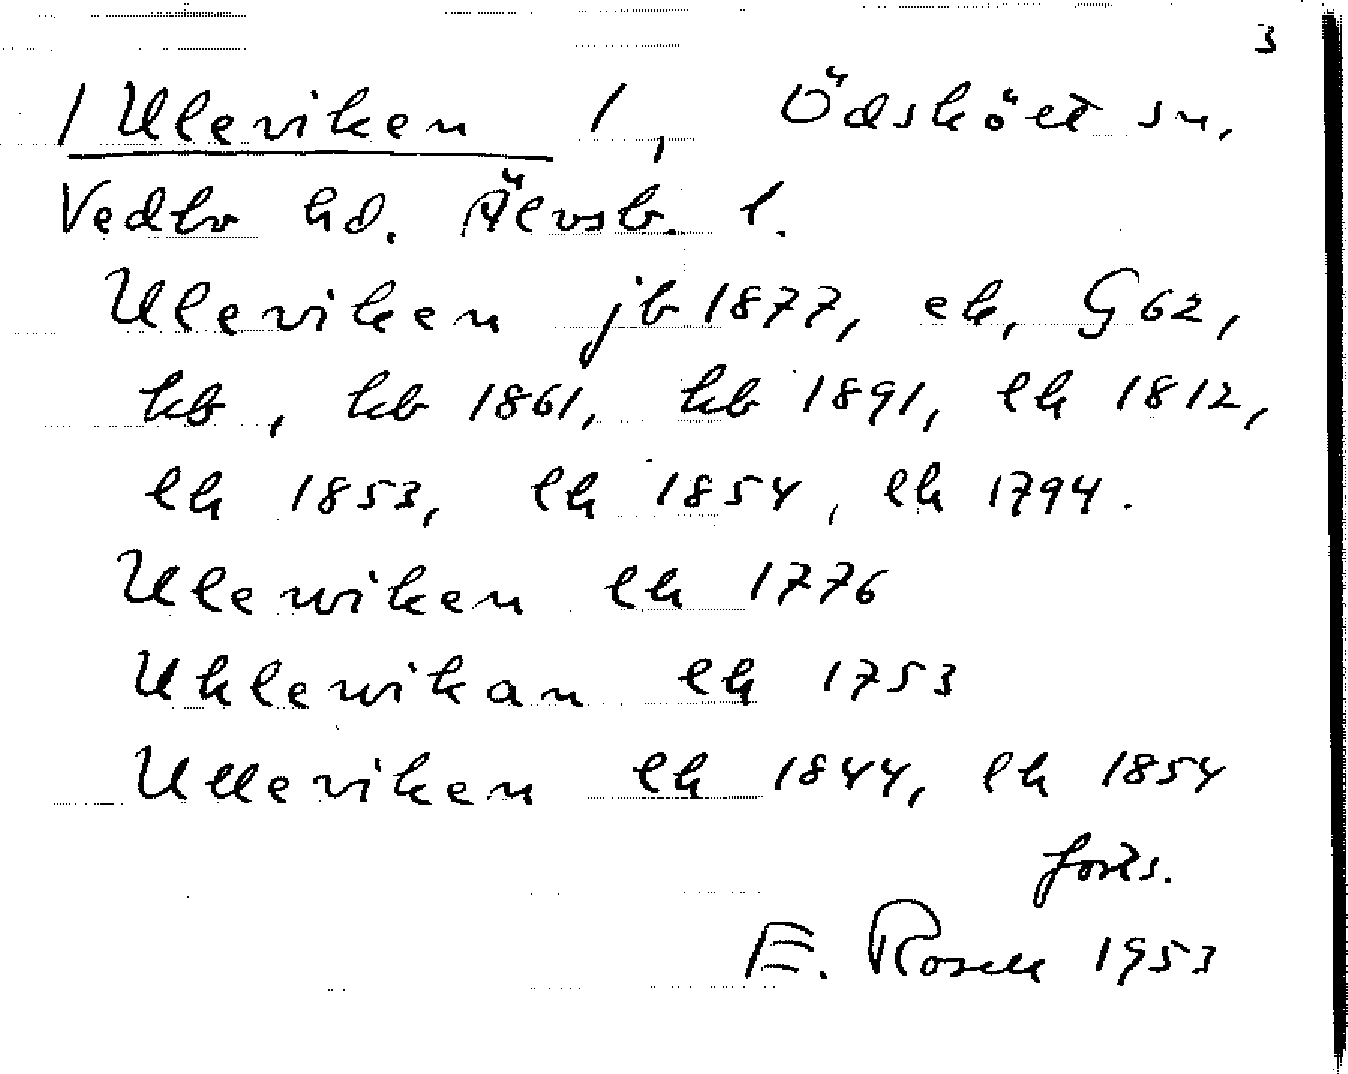 3
/ Uleviken /, Ödskölt sn,
Vedbo hd. Älvsb. l.
Uleviken jb 1877, ek, G 62,
kb, kb 1861, kb 1891, lh 1812,
lh 1853, lh 1854, lh 1794.
Ulewiken lh 1776
Uhlewikan lh 1753
Ulleviken lh 1844, lh 1854
forts.
E. Rosell 1953